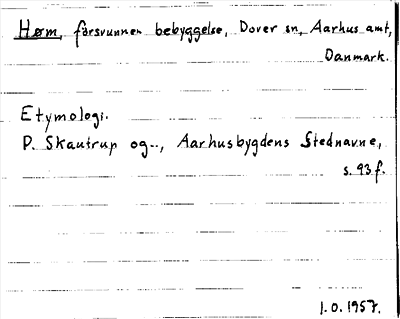 Hørm, försvunnen bebyggelse, Dover sn, Aarhus amt,
Danmark.
Etymologi.
P. Skautrup og.., Aarhusbygdens Stednavne,
s. 93 f.
J.O. 1957.